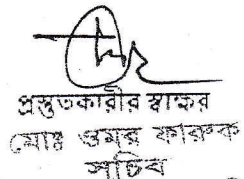 প্রস্তুতকারীর স্বাক্ষর
মোঃ ওমর ফারুক
সচিব